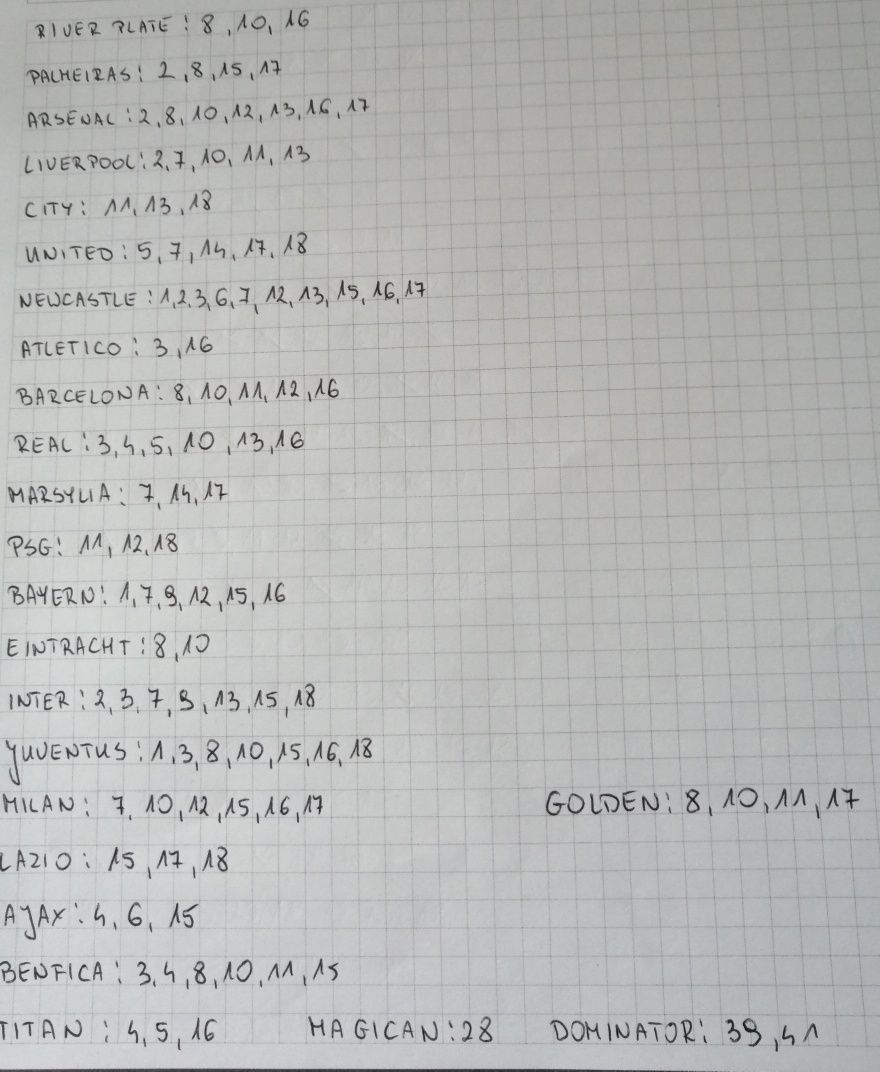 RIVER PLATE : 8, 10, 16
PALMEIRAS : 2, 8, 15, 17
ARSENAL : 2, 8, 10, 12, 13, 16, 17
LIVERPOOL : 2, 7, 10, 11, 13
CITY : 11, 13, 18
UNITED : 5, 7, 14, 17, 18
NEWCASTLE : 1, 2, 3, 6, 7, 12, 13, 15, 16, 17
ATLETICO : 3, 16
BARCELONA : 8, 10, 11, 12, 16
REAL : 3, 4, 5, 10, 13, 16
MARSYLIA : 7, 14, 17
PSG : 11, 12, 18
BAYERN : 1, 7, 9, 12, 15, 16
EINTRACHT : 8, 10
INTER : 2, 3, 7, 9, 13, 15, 18
JUVENTUS : 1, 3, 8, 10, 15, 16, 18
MILAN : 7, 10, 12, 15, 16, 17 GOLDEN : 8, 10, 11, 17
LAZIO : 15, 17, 18
AJAX : 4, 6, 15
BENFICA : 3, 4, 8, 10, 11, 15
TITAN : 4, 5, 16 MAGICAN : 28 DOMINATOR : 39, 41